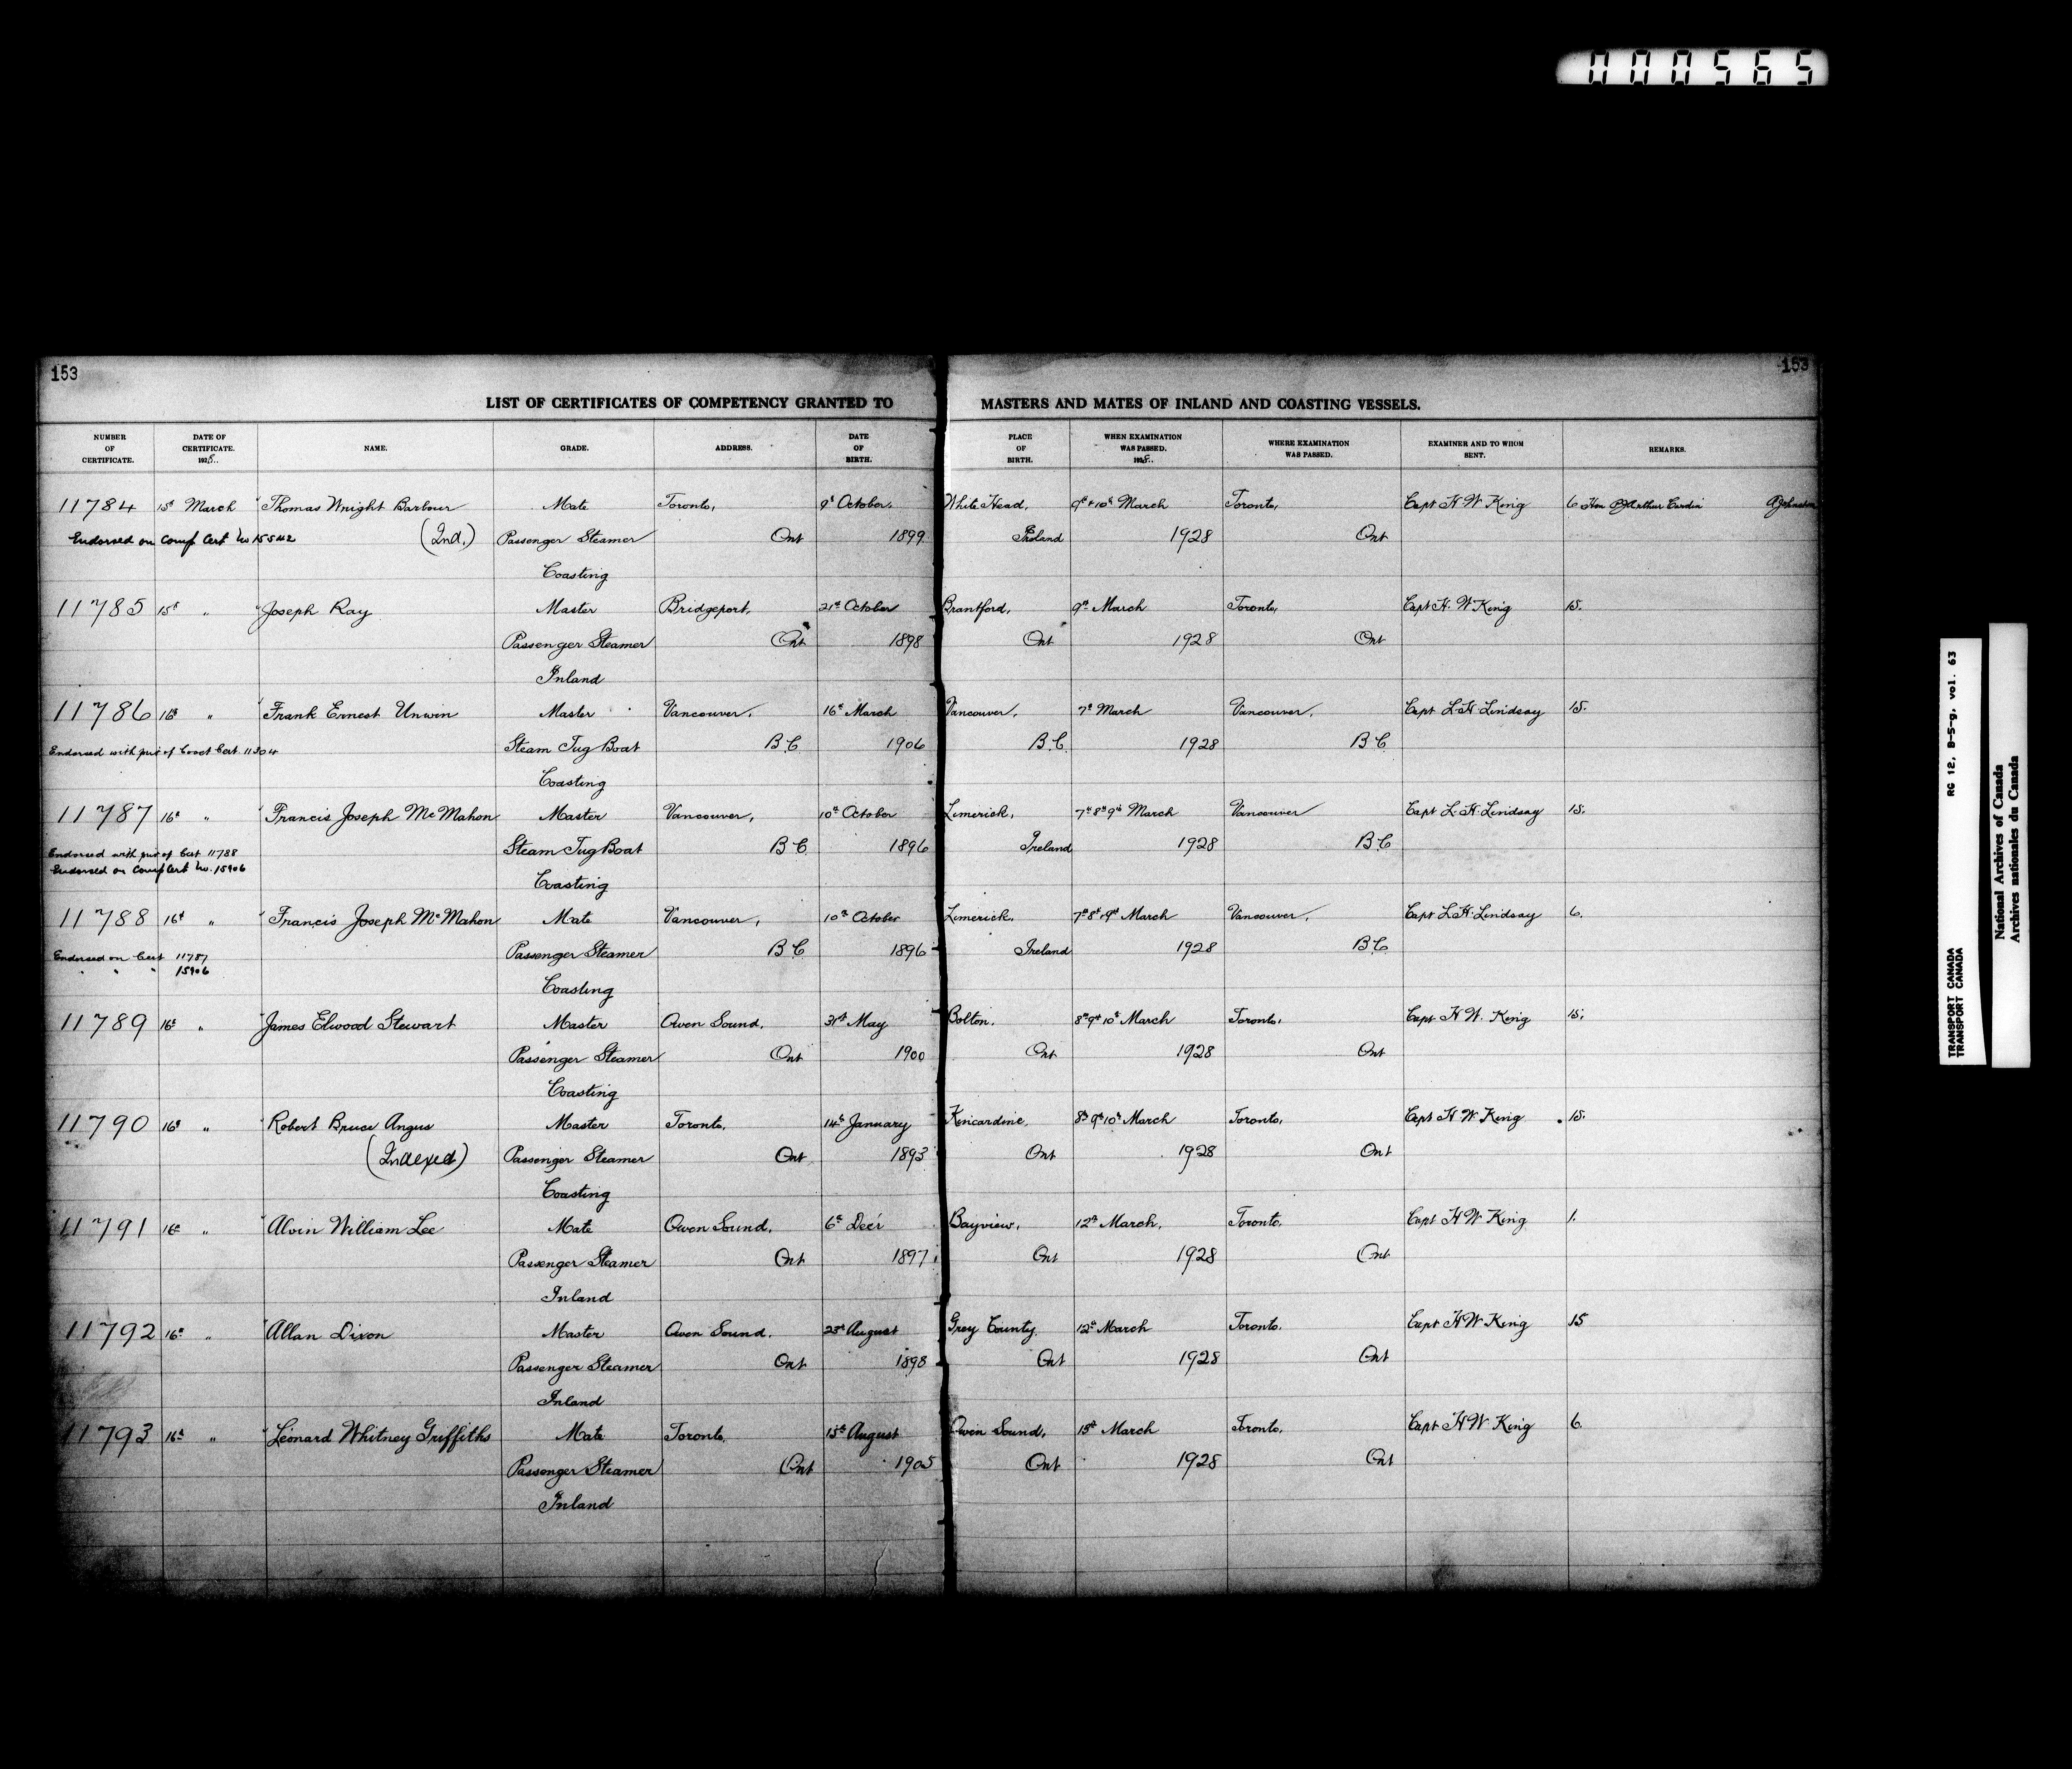 000565
153
153
LIST OF CERTIFICATES OF COMPETENCY GRANTED TO MASTERS AND MATES OF INLAND AND COASTING VESSELS.
NUMBER OF CERTIFICATE. DATE OF CERTIFICATE. 1928. NAME. GRADE. ADDRESS. DATE OF BIRTH. PLACE OF BIRTH. WHEN EXAMINATION WAS PASSED. 1928. WHERE EXAMINATION WAS PASSED. EXAMINER AND TO WHOM SENT. REMARKS.
11784 15th March Thomas Wright Barbour Mate Toronto, 9th October. White Head, 9th & 10th March Toronto, Capt H W King 6 Hon P J Arthur Cardin A Johnston
Endorsed on Comp Cert No 15542 (Ind.) Passenger Steamer Ont 1899 Ireland 1928 Ont
Coasting
11785 15th " Joseph Ray Master Bridgeport, 21st October Brantford, 9th March Toronto, Capt H. W King 15.
Passenger Steamer Ont 1898 Ont 1928 Ont
Inland
11786 16th " Frank Ernest Unwin Master Vancouver, 16th March Vancouver, 7th March Vancouver, Capt L. H. Lindsay 15.
Endorsed with part of Cert 11304 Steam Tug Boat B.C 1906 B.C. 1928 B C
Coasting
11787 16th " Francis Joseph McMahon Master Vancouver, 10th October Limerick, 7th 8th 9th March Vancouver Capt L. H. Lindsay 15.
Endorsed with part of Cert 11788 Steam Tug Boat B C. 1896 Ireland 1928 B C
Endorsed on Comp Cert No. 15906
Coasting
11788 16th " Francis Joseph McMahon Mate Vancouver, 10th October Limerick, 7th 8th & 9th March Vancouver, Capt L. H. Lindsay 6.
Endorsed on Cert 11787 Passenger Steamer B C 1896 Ireland 1928 B C
" " " 15906
Coasting
11789 16th " James Elwood Stewart Master Owen Sound, 31st May Bolton, 8th 9th 10th March Toronto, Capt H W. King 15.
Passenger Steamer Ont 1900 Ont 1928 Ont
Coasting
11790 16th " Robert Bruce Angus Master Toronto, 14th January Kincardine, 8th 9th 10th March Toronto, Capt H. W. King 15.
(Indexed) Passenger Steamer Ont 1893 Ont 1928 Ont
Coasting
11791 16th " Alvin William Lee Mate Owen Sound, 6th Decr Bayview, 12th March, Toronto. Capt H W King 1.
Passenger Steamer Ont 1897 Ont 1928 Ont
Inland
11792 16th " Allan Dixon Master Owen Sound. 23rd August Grey County. 12th March Toronto. Capt H W King 15
Passenger Steamer Ont 1898 Ont 1928 Ont
Inland
11793 16th " Leonard Whitney Griffiths Mate Toronto, 15th August Owen Sound, 15th March Toronto, Capt H W King 6.
Passenger Steamer Ont 1905 Ont 1928 Ont
Inland
TRANSPORT CANADA RG 12, B-5-g, vol. 63
TRANSPORT CANADA
National Archives of Canada
Archives nationales du Canada